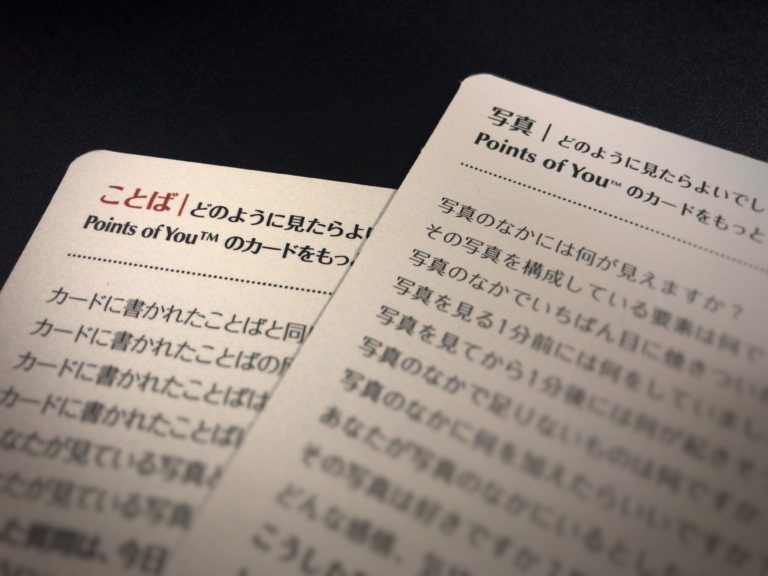 ことば | どのように見たらよい
Points of You™ のカードをもっ
カードに書かれたことばと同
カードに書かれたことばの
カードに書かれたことばは
カードに書かれたことば
なたが見ている写真
たが見ている写真
た質問は、今日
写真 | どのように見たらよいでし
Points of You™ のカードをもっと
写真のなかには何が見えますか？
その写真を構成している要素は何で
写真のなかでいちばん目に焼きつい
写真を見る1分前には何をしていまし
写真を見てから1分後には何が起きそ
写真のなかで足りないものは何ですか
写真のなかに何を加えたらいいですか？
あなたが写真のなかにいるとした
その写真は好きですか？
どんな感情、
こうした